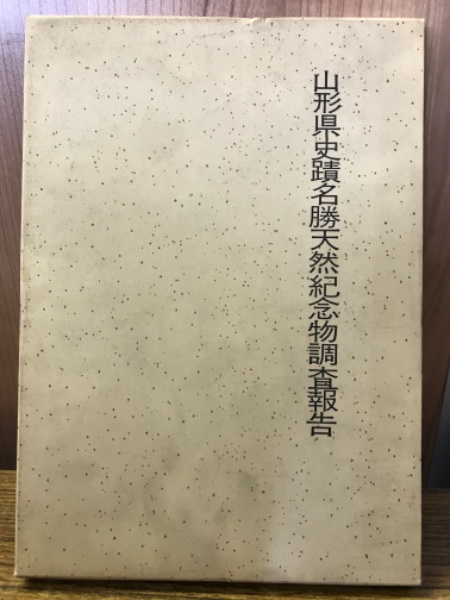 山形県史蹟名勝天然紀念物調査報告